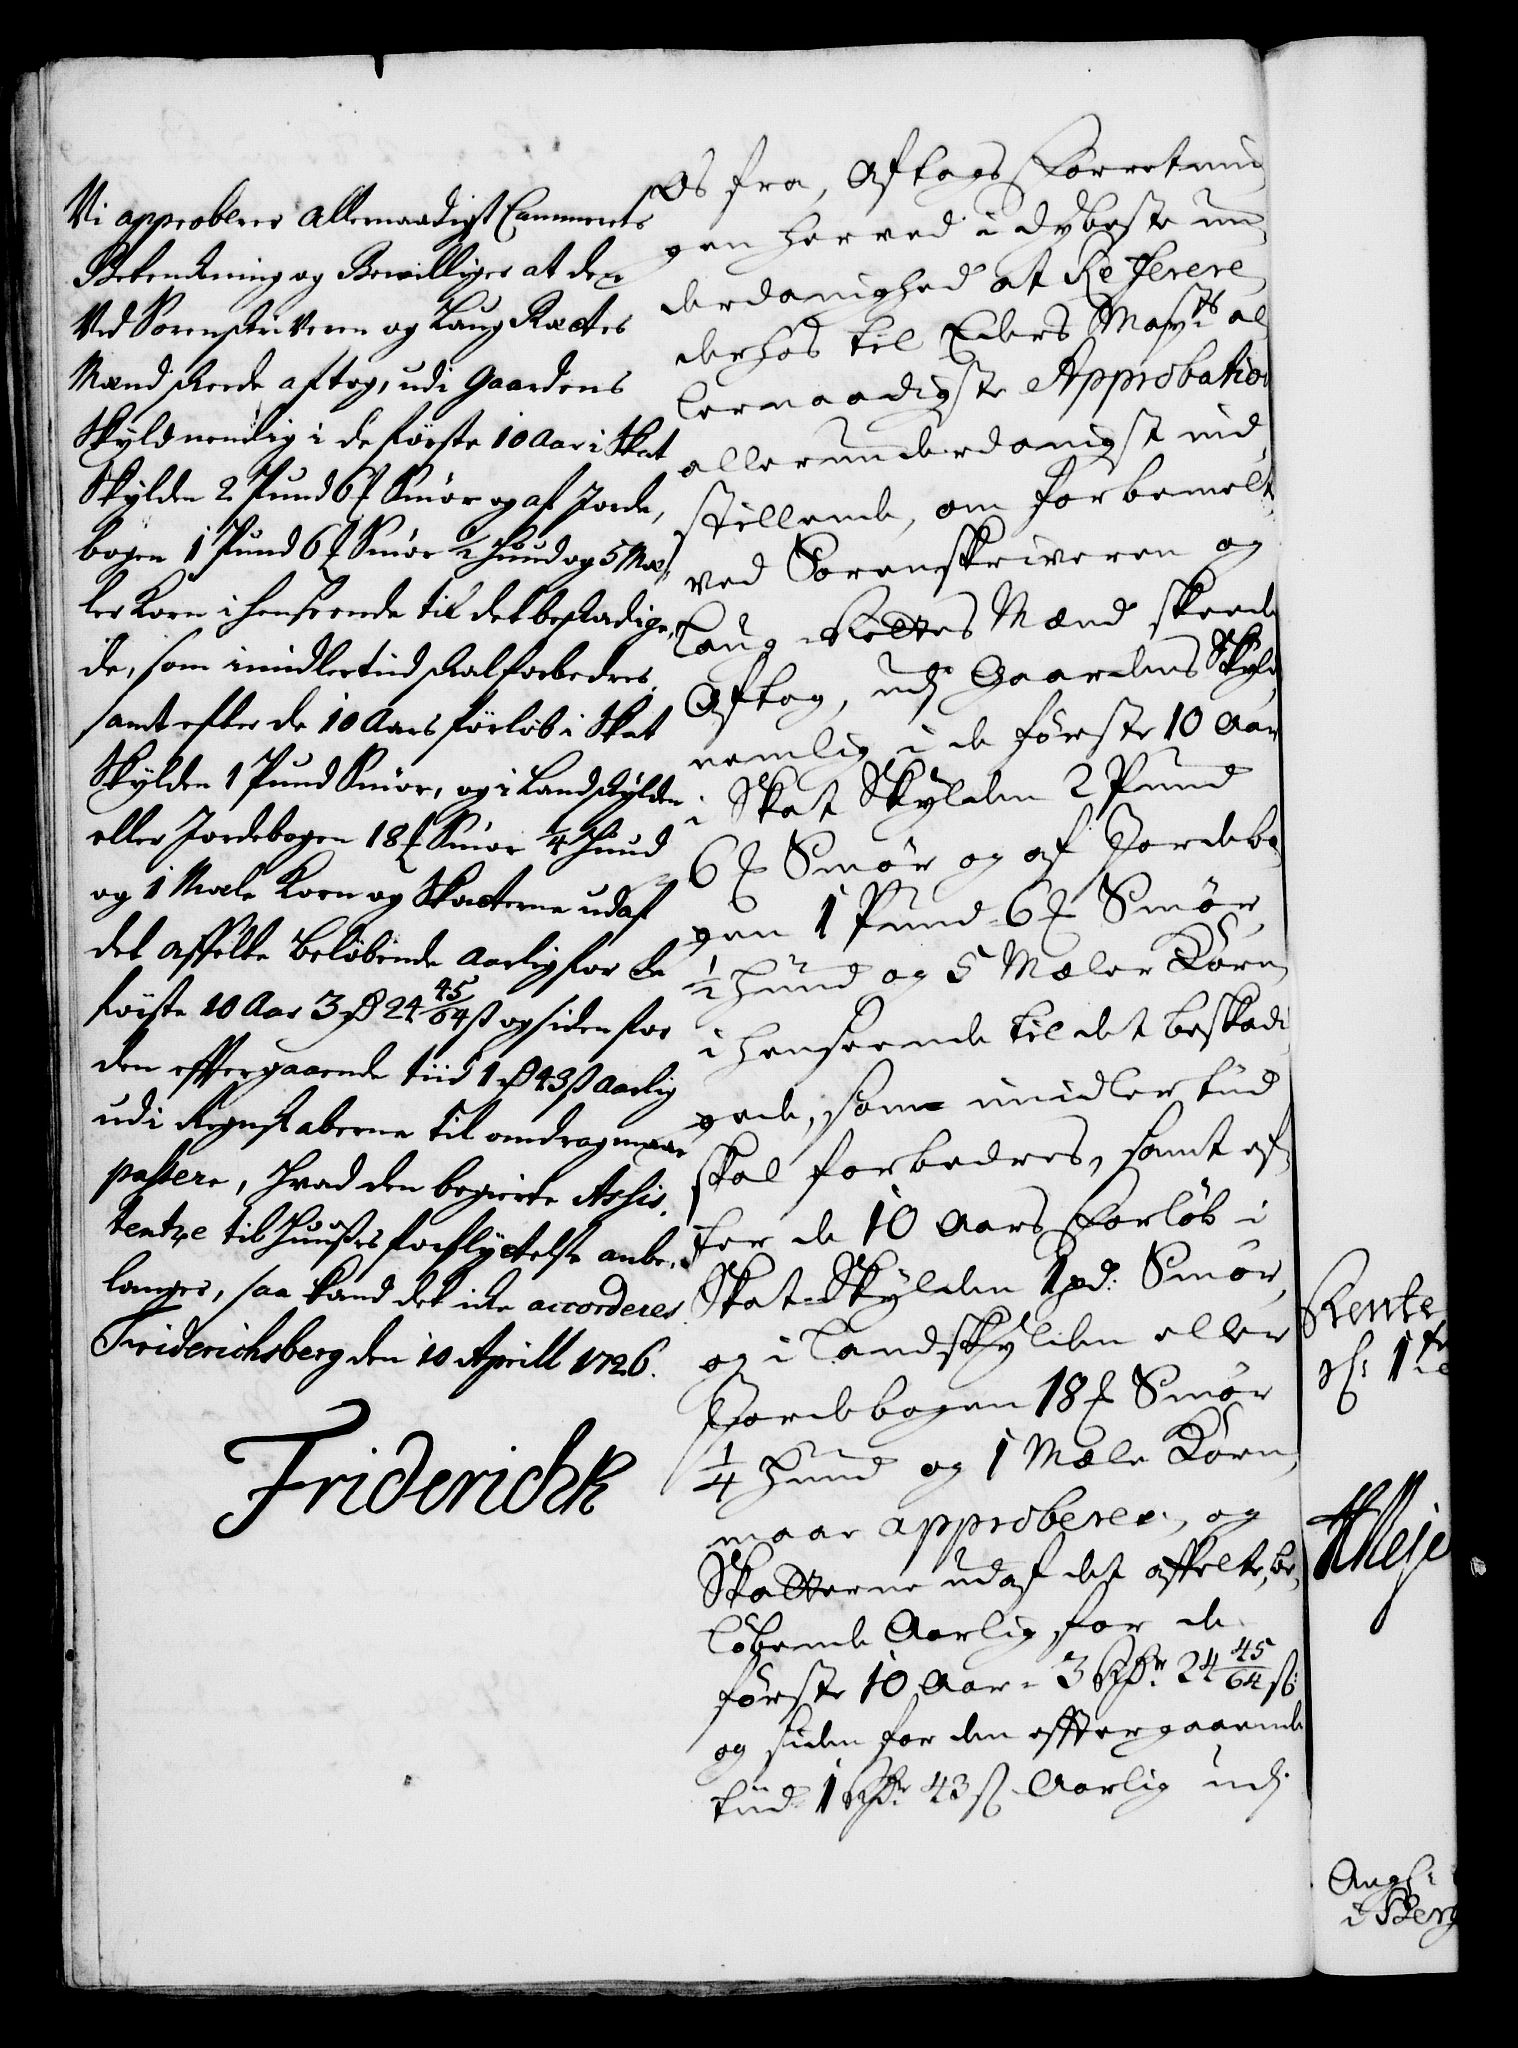 Vi approberer Allernaadigst Cammerets
Betenckning og Bewilliger at den
Ved Sorenskriveren og Laug Rættes
Mænd skeede aftog, udi Gaardens
Skyld nemlig i de første 10 Aar i Skat
Skylden 2 Pund 6 ℔ Smør og af Jorde,
bogen 1 Pund 6 ℔ Smør ½ Huud og 5 Mæ,
ler Korn i henseende til det beskadige,
de, som imidlertid skal forbedres,
samt efter de 10 Aars forløb i Skat
Skylden 1 Pund Smør, og i Landskylden
eller Jordebogen 18 ℔ Smør ¼ Huud
og 1 Mæle Korn og Skatterne udaf
det affelte beløbende aarlig for de
første 10 Aar 3 rd 24 45/64 ß og siden for
den efftergaaende tiid 1 rd 43 ß aarlig
udi Regnskaberne til omdrag maae
passere, hvad den begierte Assis,
tentze til Huuses forflyttelse anbe,
langer, saa kand det icke accorderes
Friderichsberg den 10 Aprill 1726.
Friderich R
os fra, Aftags Forretnin
gen herved i dybeste un,
derdanighed at Referere
derhos til Eders Mayts al
lernaadigste Approbation
allerunderdanigst ind
stillende, om forbemelte
ved Sorenskriveren og
Laug Rettes Mænd skeede
Aftag, udj Gaardens Skyld
nemlig i de første 10 Aar
i Skat Skylden 2 Pund
6 ℔ Smør og af Jordebo
gen 1 Pund 6 ℔ Smør
½ Huud og 5 Mæler Korn
i henseende til det beskadi
gede, som imidlertiid
skal forbedres, samt ef
ter de 10 Aars Forløb i
Skat-Skylden 1 pd: Smør,
og i Landskylden eller
Jordebogen 18 ℔ Smør
¼ Huud og 1 Mæle Korn,
maae approberes, og
Skatterne udaf det affelte, be,
løbende Aarlig for de
første 10 Aar - 3 Rdr. 24 45/64 ß:
og siden for den efftergaaende
tiid 1 Rdr 43 ß Aarlig udj
Rente
1te